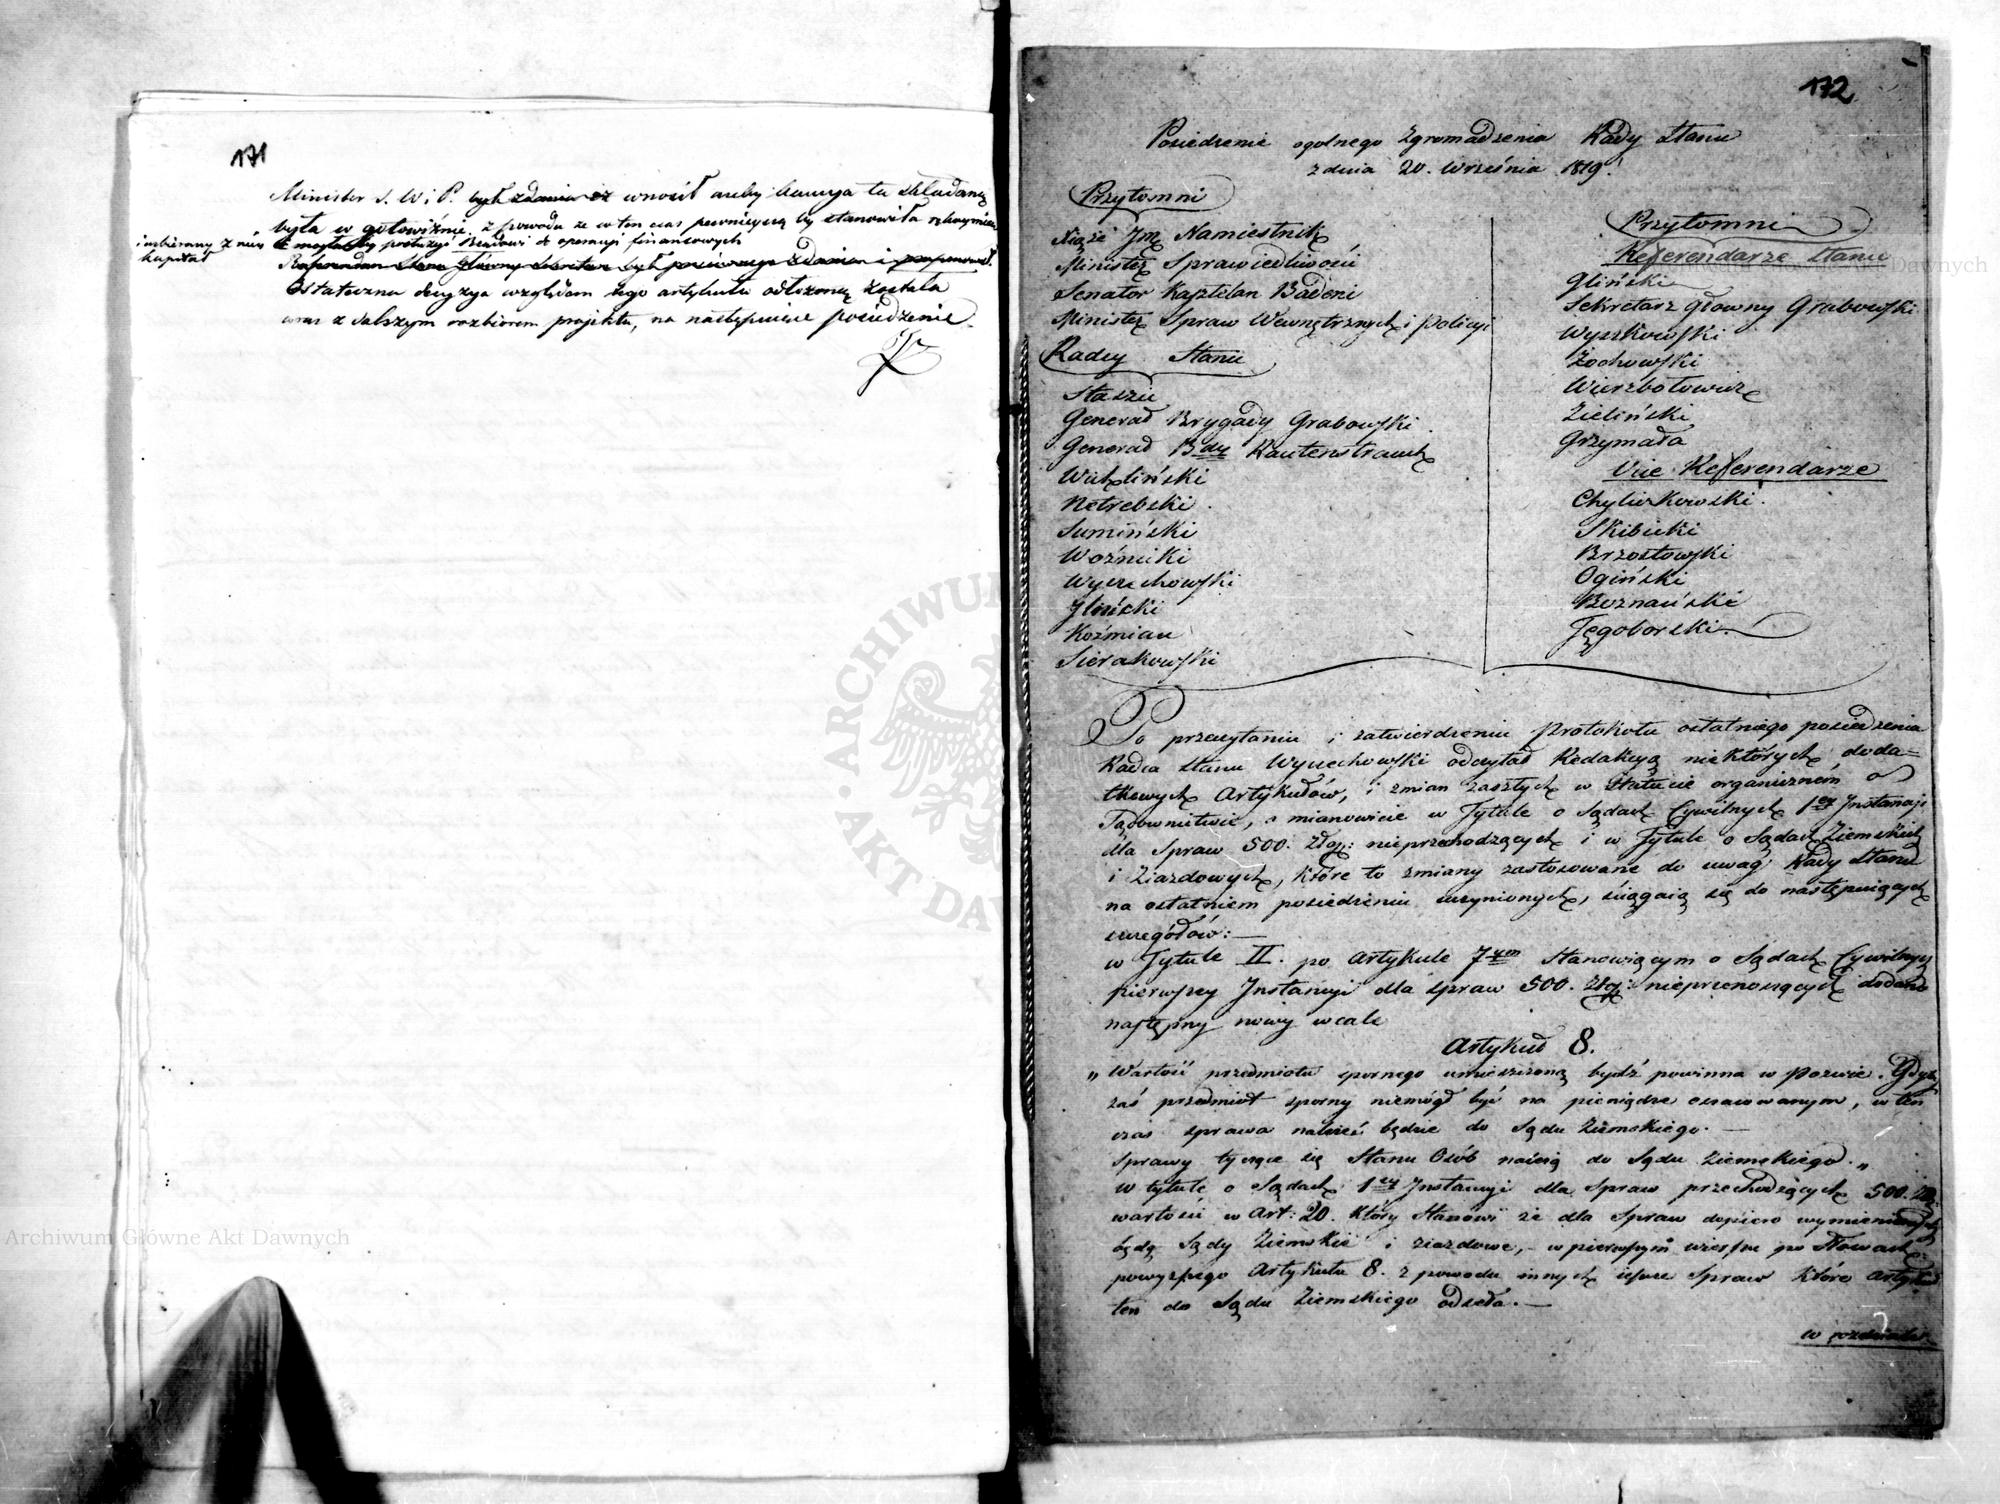 171
Minister S. W. i P. był zdania iż wnosił ażeby kaucya ta składaną
była w gotowiźnie, z powodu że w ten czas pewnieyszą by stanowiła rękoymię
inzbierany z niey kapitał
i mogłaby posłużyć Rządowi do operacyi finansowych
Ostateczna decyzya względem tego artykułu odłożoną została
wraz z dalszym rozbiorem projektu, na następuiące posiedzenie.
172
Posiedzenie ogolnego Zgromadzenia Rady Stanu
z dnia 20. Września 1819.
Przytomni
Xiąże Jmć Namiestnik
Minister Sprawiedliwości
Senator Kasztelan Badeni
Minister Spraw Wewnętrznych i Policyi
Radcy Stanu
Staszic
Generał Brygady Grabowski
Generał Bdy Rautenstrauch
Wichliński
Netrebski
Sumiński
Woźnicki
Wyczechowski
Gliński
Koźmian
Sierakowski
Przytomni
Referendarze Stanu
Gliński
Sekretarz Główny Grabowski
Wyszkowski
Żochowski
Wierzbołowicz
Zieliński
Grzymała
Vice Referendarze
Chyliczkowski
Skibicki
Brzostowski
Ogiński
Boznański
Tęgoborski
Po przeczytaniu i zatwierdzeniu Protokołu ostatniego posiedzenia
Radca Stanu Wyczechowski odczytał Redakcyą niektórych doda=
tkowych Artykułów, i zmian zaszłych w Statucie organicznem o
Sądownictwie, a mianowicie w Tytule o Sądach Cywilnych 1ey Instancyi
dla Spraw 500. Złop: nieprzechodzących i w Tytule o Sądach Ziemskich
i Ziazdowych, które to zmiany zastosowane do uwag Rady Stanu
na ostatniem posiedzeniu uczynionych, ściągaią się do następuiących
szczegółów:—
w Tytule II. po Artykule 7ym stanowiącym o Sądach Cywilnych
pierwszey Instancyi dla spraw 500. Złop: nieprzenoszących dodano
następny nowy wcale
Artykuł 8.
„Wartość przedmiotu spornego umieszczoną bydź powinna w pozwie. Gdyby
zaś przedmiot sporny niemógł być na pieniądze oszacowanym, w ten
czas sprawa należeć będzie do Sądu Ziemskiego.—
Sprawy tyczące się Stanu Osób należą do Sądu Ziemskiego.„
w tytule o Sądach 1ey Instancyi dla Spraw przechodzących 500. Złp.
wartości w Art: 20. który stanowi że dla Spraw dopiero wymienionych
będą Sądy Ziemskie i ziazdowe,- w pierwszym wierszu po Słowach:
powyższego Artykułu 8. z powodu innych iescze Spraw które artykuł
ten do Sądu Ziemskiego odseła.—
Archiwum Główne Akt Dawnych
Archiwum Główne Akt Dawnych
ARCHIWUM GŁÓWNE AKT DAWNYCH